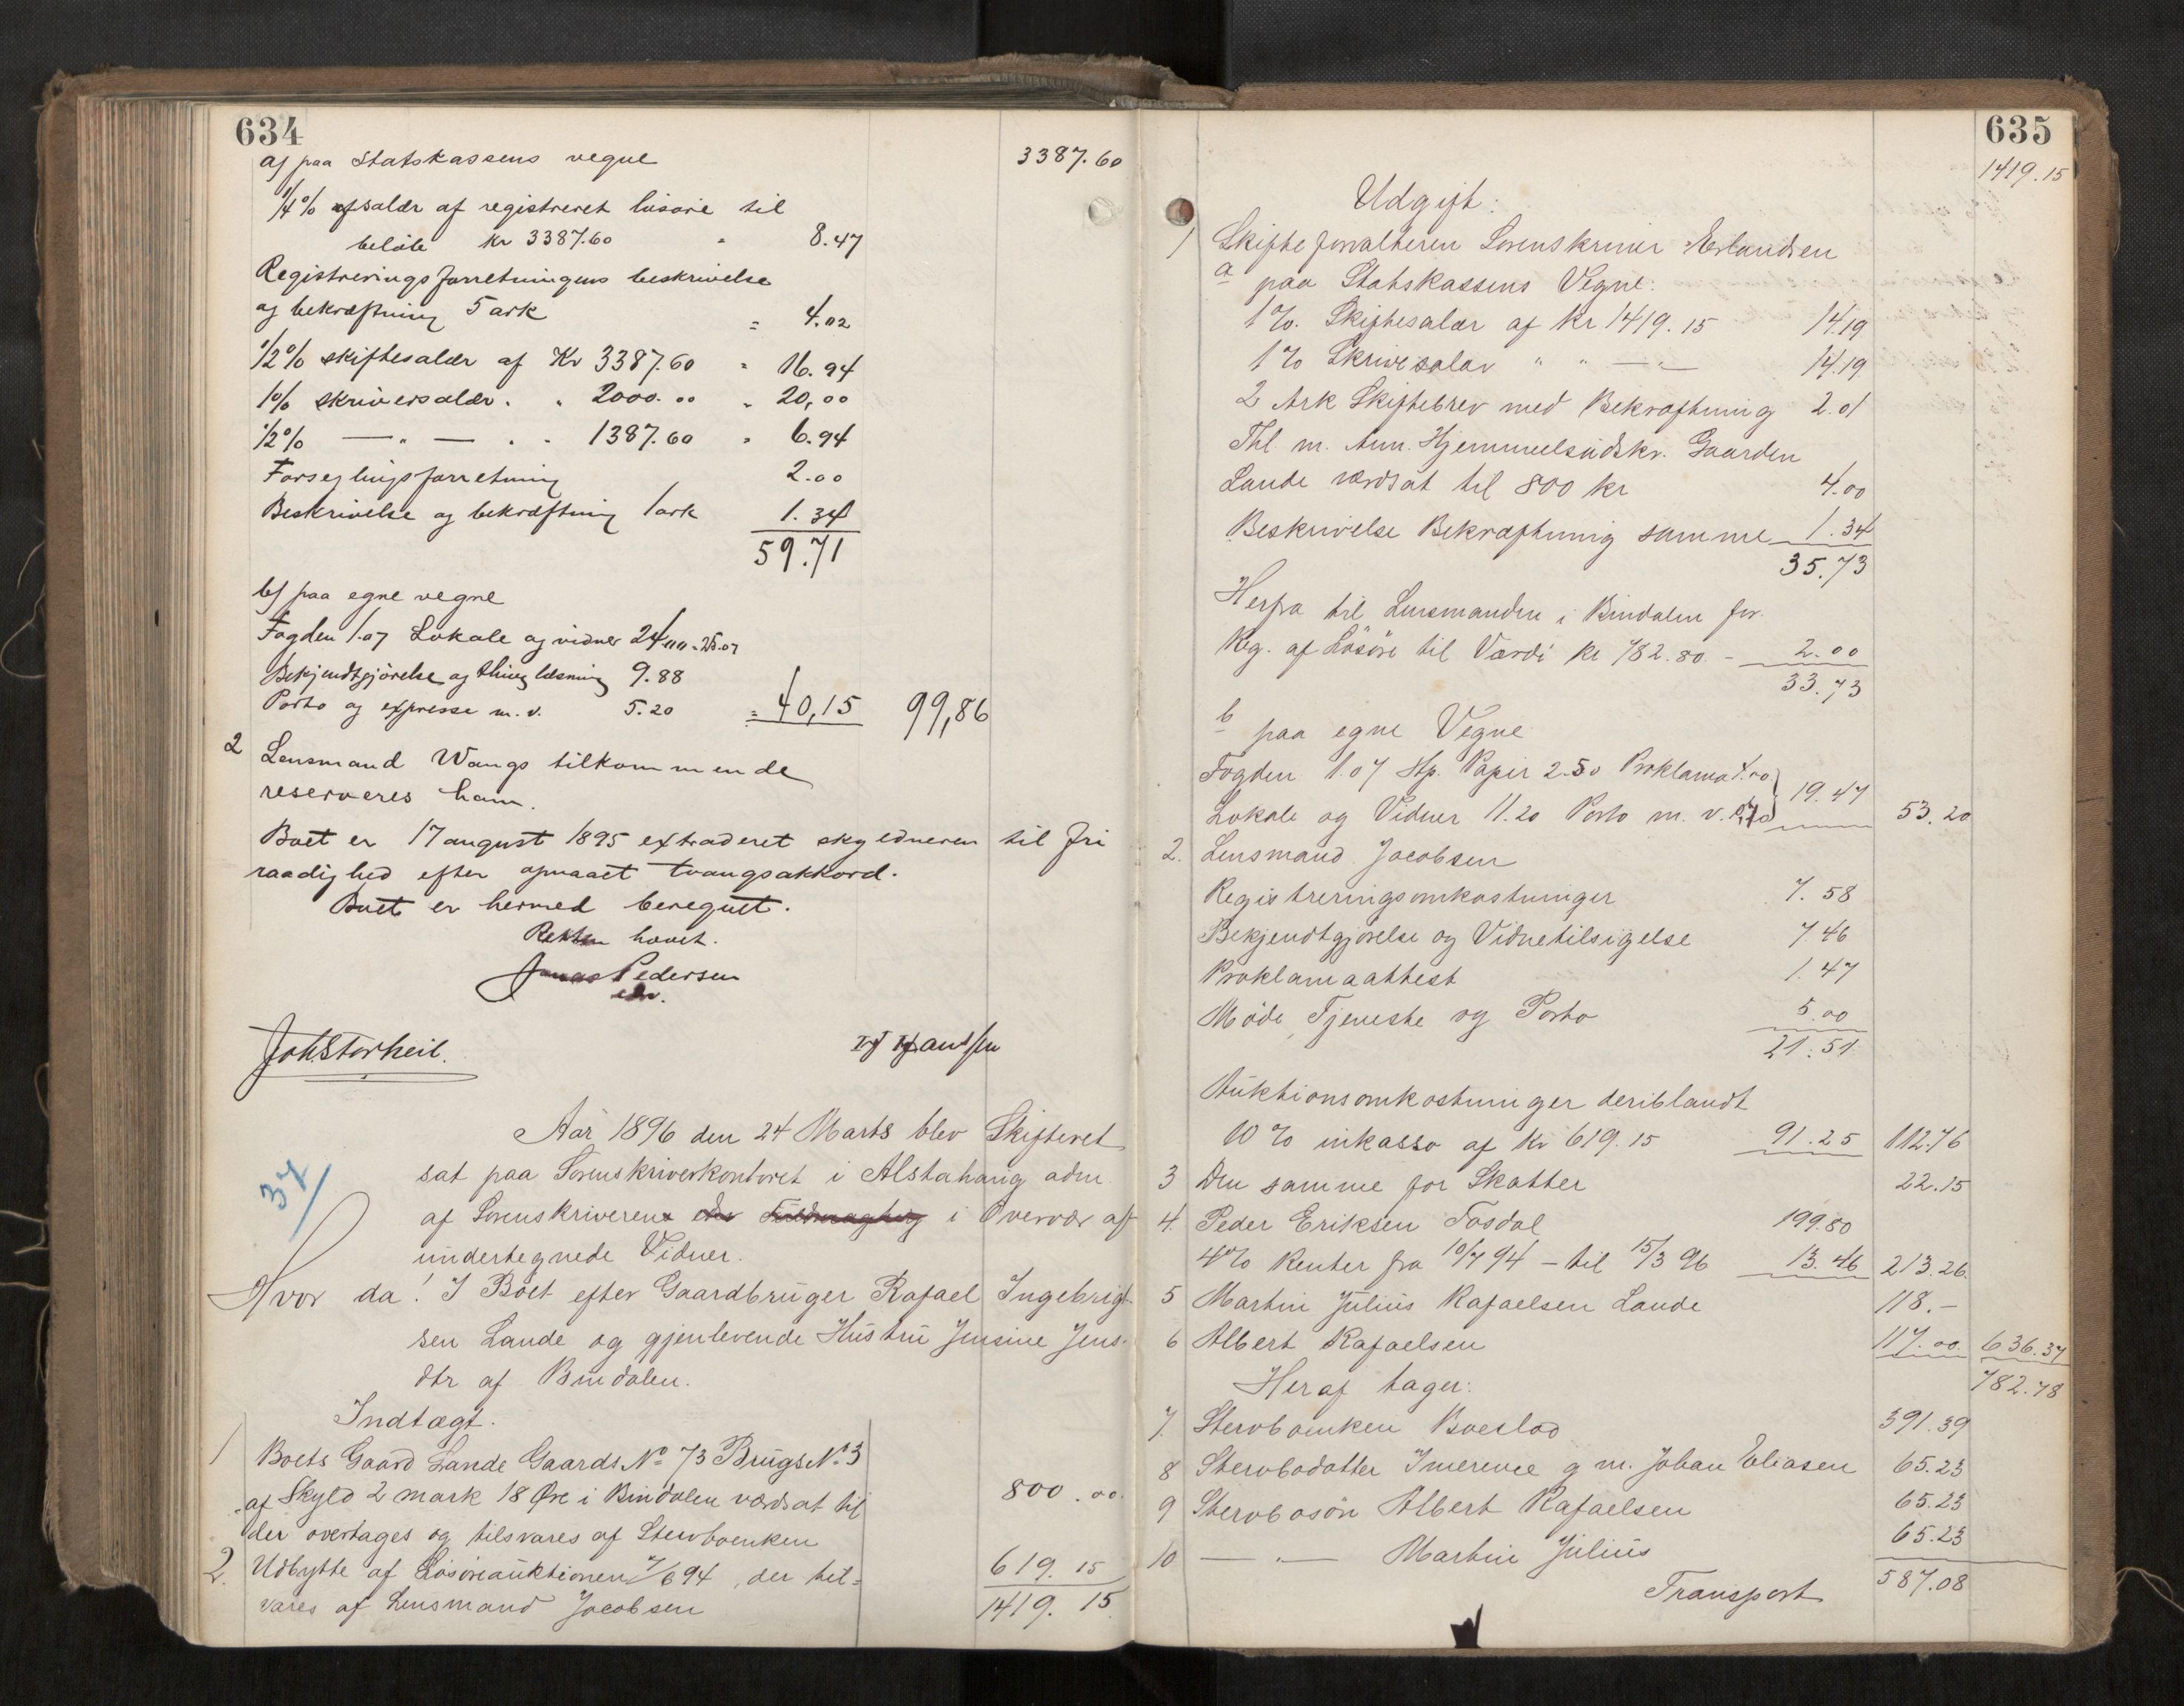 634
a/ paa Statskassens vegne 3387.60
1/4% afsalær af registreret løsøre til
beløb kr 3387.60 " 8.47
Registreringsforretningens beskrivelse
og bekræftning 5 ark = 4.02
1/2% skiftesalær af Kr 3387.60 " 16.94
1% skriversalær . " 2000.00 " 20,00
1/2% — " — . . 1387.60 " 6.94
Forseglingsforretning 2.00
Beskrivelse og bekræftning 1 ark 1.34
59.71
b/ paa egne vegne
Fogden 1.07 Lokale og vidner 24,00 = 25.07
Bekjendtgjørelse og thinglæsning 9.88
Porto og expresse m.v. 5.20 = 40,15 99,86
2 Lensmand Wangs tilkommende
reserveres ham.
Boet er 17 august 1895 extraderet skyldneren til fri
raadighed efter opnaaet tvangsakkord.
Boet er hermed beregnet.
Retten hævet.
Jonas Pedersen
edv.
Joh Storheil.
37/
Aar 1896 den 24 Marts blev Skifteret
sat paa Sorenskriverkontoret i Alstahaug adm.
af Sorenskriveren i Overvær af
undertegnede Vidner.
Hvor da! I Boet efter Gaardbruger Rafael Ingebrigt-
sen Lande og gjenlevende Hustru Jensine Jens-
dtr af Bindalen.
Indtægt.
1 Boets Gaard Lande Gaards No 73 Brugs No 3
af Skyld 2 mark 18 Øre i Bindalen værdsat til 800.00
der overtages og tilsvares af Stervboenken
2. Udbytte af Løsøreauktionen 7/6 94, der til= 619.15
vares af Lensmand Jacobsen 1419.15
635
1419.15
Udgift:
1 Skifteforvalteren Sorenskriver Erlandsen
a paa Statskassens Vegne:
1%. Skiftesalær af Kr 1419.15 14.19
1% Skrivesalær " " — " — 14.19
2 Ark Skiftebrev med Bekræftning 2.01
Thl. m. Ann. Hjemmelsudskr. Gaarden
Lande værdsat til 800 kr 4.00
Beskrivelse Bekræftning samme 1.34
35.73
Herfra til Lensmanden i Bindalen for
Reg. af Løsøre til Værdi kr 782.80 - 2.00
33.73
b paa egne Vegne
Fogden 1.07 Stp. Papir 2.50 Proklama 4.00
Lokale og Vidner 11.20 Porto m. v. 19.47 53.20
2. Lensmand Jacobsen
Registreringsomkostninger 7.58
Bekjendtgjørelse og Vidnetilsigelse 7.46
Proklamaattest 1.47
Møde, Tjeneste og Porto 5.00
21.51
Auktionsomkostninger deriblandt
10% inkasso af Kr 619.15 91.25 112.76
3 Den samme for Skatter 22.15
4. Peder Eriksen Tosdal 199.80
4% Renter fra 10/7 94 - til 15/3 96 13.46 213.26
5 Martin Julius Rafaelsen Lande 118.-
6 Albert Rafaelsen 117.00. 636.37
Heraf tager: 782.78
7. Stervboenken Boeslod 391.39
8 Stervbodatter Imerence g m. Johan Eliasen 65.23
9 Stervbosøn Albert Rafaelsen 65.23
10 — " — Martin Julius 65.23
Transport 587.08